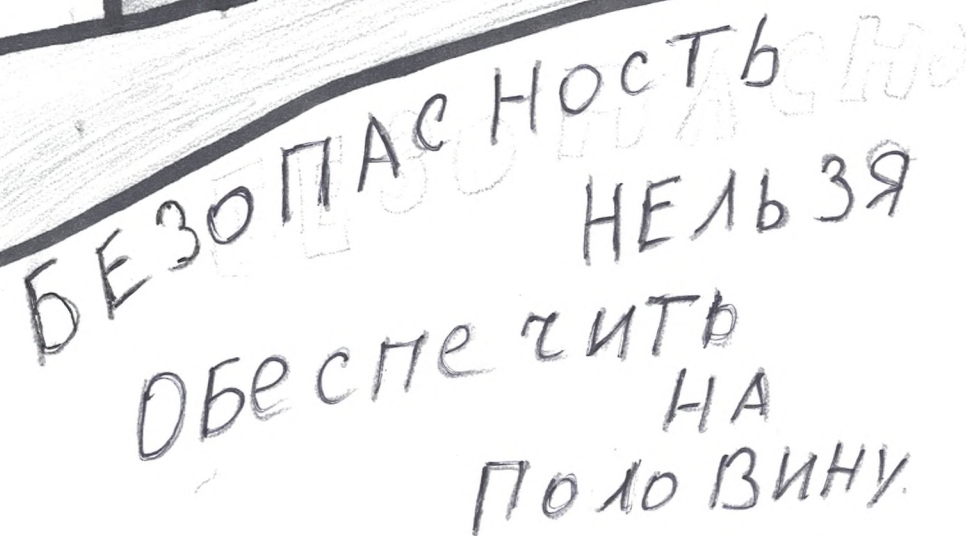 БЕЗОПАСНОСТЬ
НЕЛЬЗЯ
ОБеспечить
НА
ПолоВину.